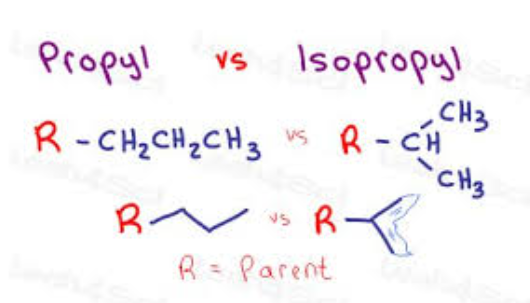 Propyl vs Isopropyl
R - CH₂CH₂CH₃ vs R - CH CH₃ CH₃
R vs R
R = Parent